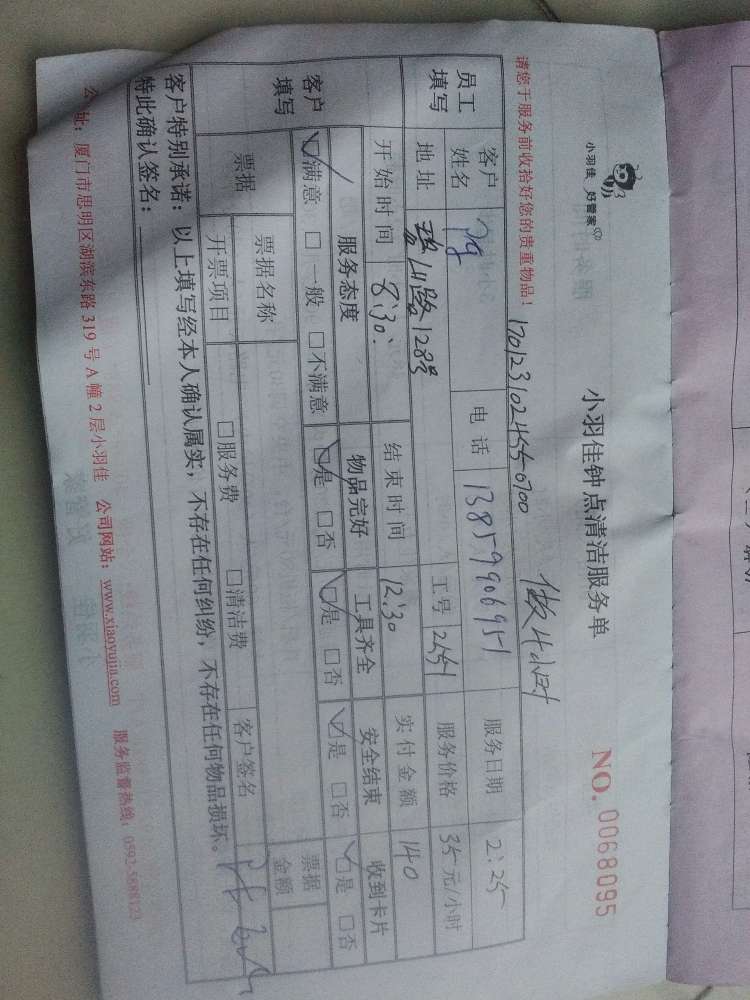 小羽佳 好管家
小羽佳钟点清洁服务单
NO. 0068095
请您于服务前收拾好您的贵重物品！
17012310245550700 做4小时
员工填写 客户姓名 电话 13859906951 服务日期 2.25
地址 128号 工号 2551 服务价格 35元/小时
开始时间 8:30 结束时间 12:30 实付金额 140
客户填写 服务态度 物品完好 工具齐全 安全结束 收到卡片
☑满意 □一般 □不满意 ☑是 □否 ☑是 □否 ☑是 □否 ☑是 □否
票据 票据名称 客户签名 票据金额
开票项目 □服务费 □清洁费
客户特别承诺：以上填写经本人确认属实，不存在任何纠纷，不存在任何物品损坏。
特此确认签名：
公 址：厦门市思明区湖滨东路319号A幢2层小羽佳 公司网站：www.xiaoyujia.com 服务监督热线：0592-5688123